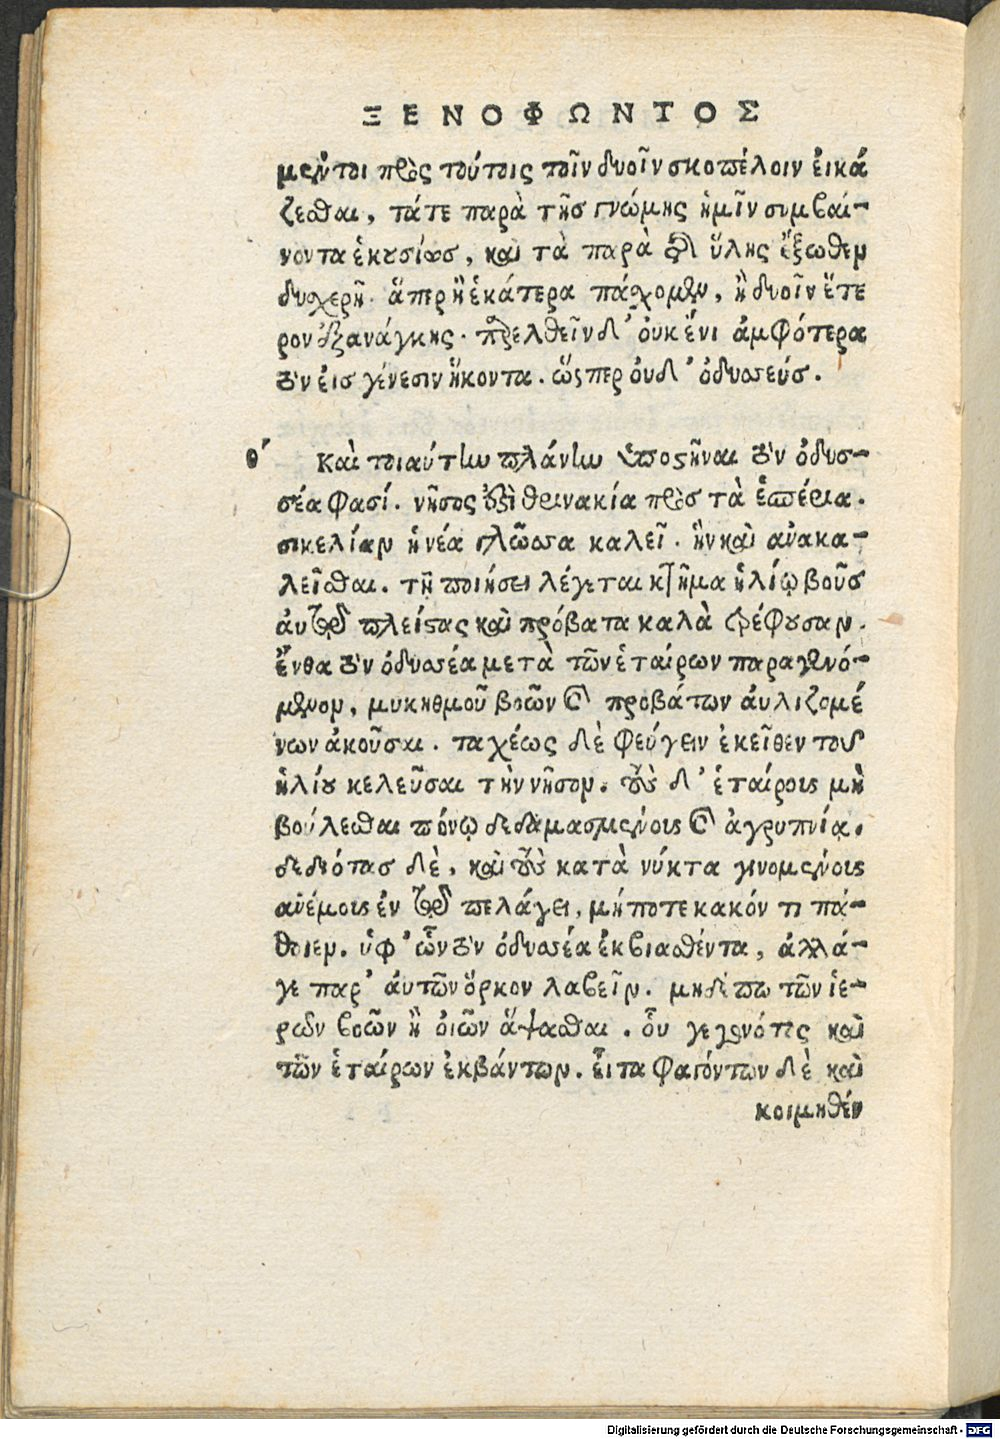 ΞΕΝΟΦΩΝΤΟΣ
μέντοι πρὸς τούτοις τοῖν δυοῖν σκοπέλοιν εἰκά
ζεσθαι, τάτε παρὰ τῆς γνώμης ἡμῖν συμβαί-
νοντα ἑκουσίως, καὶ τὰ παρὰ τῆς ὕλης ἔξωθεν
δυχερῆ. ἅπερ ἢ ἑκάτερα πάχομεν, ἢ δυοῖν ἕτε
ρον ἐξανάγκης. παρελθεῖν δ' ὀυκ ἔνι ἀμφότερα
οὖν ἐις γένεσιν ἥκοντα. ὥςπερ ὀυδ' ὀδυσσεύς.
θ' Καὶ τοιαύτην πλάνην ὑποστῆναι οὖν ὀδυσ-
σέα φασί. νῆσος ἐστὶ θρινακία πρὸς τὰ ἑσπέρια.
σικελίαν ἡ νέα γλῶσσα καλεῖ. ἣν καὶ ἀνακα-
λεῖσθαι. τῇ ποιήσει λέγεται κτῆμα ἡλίῳ βοῦς
ἀυτοῦ πλείστας καὶ πρόβατα καλὰ τρέφουσαν.
ἔνθα οὖν ὀδυσσέα μετὰ τῶν ἑταίρων παραγενό-
μενον, μυκηθμοῦ βοῶν καὶ προβάτων ἀυλιζομέ
νων ἀκοῦσαι. ταχέως δὲ φεύγειν ἐκεῖθεν τοῦ
ἡλίου κελεῦσαι τὴν νῆσον. τοὺς δ' ἑταίρους μὴ
βούλεσθαι πόνῳ δεδαμασμένους καὶ ἀγρυπνίᾳ.
δεδιότας δὲ, καὶ τοὺς κατὰ νύκτα γινομένους
ἀνέμους ἐν τῷ πελάγει, μήποτε κακόν τι πά-
θοιεν. ὑφ' ὧν οὖν ὀδυσσέα ἐκβιασθέντα, ἀλλά-
γε παρ' ἀυτῶν ὅρκον λαβεῖν. μηδέπω τῶν ἱε-
ρῶν βοῶν ἢ ὀιῶν ἅψασθαι. οὗ γεγονότος καὶ
τῶν ἑταίρων ἐκβάντων. εἶτα φαγόντων δὲ καὶ
κοιμηθέν
Digitalisierung gefördert durch die Deutsche Forschungsgemeinschaft - DFG